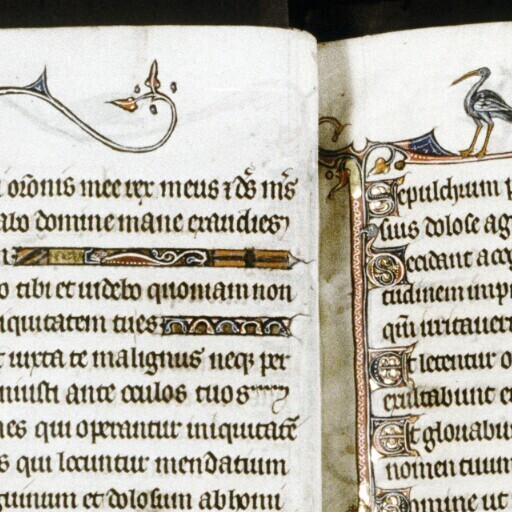 orõnis mee rex meus ⁊ ds̃ m̃s
abo domine mane exaudies
o tibi et uidebo quoniam non
iquitatem tu es
iuxta te malignus neq; per
nuisti ante oculos tuos
nes qui operantur iniquitatē
s qui locuntur mendatium
guinum et dolosum abhomi
Sepulchrum p
suis dolose ag
Decidant a cog
tudinem impi
qm̄ irritauer
Et letentur o
exultabunt e
Et gloriabu
nomen tuum
Domine ut